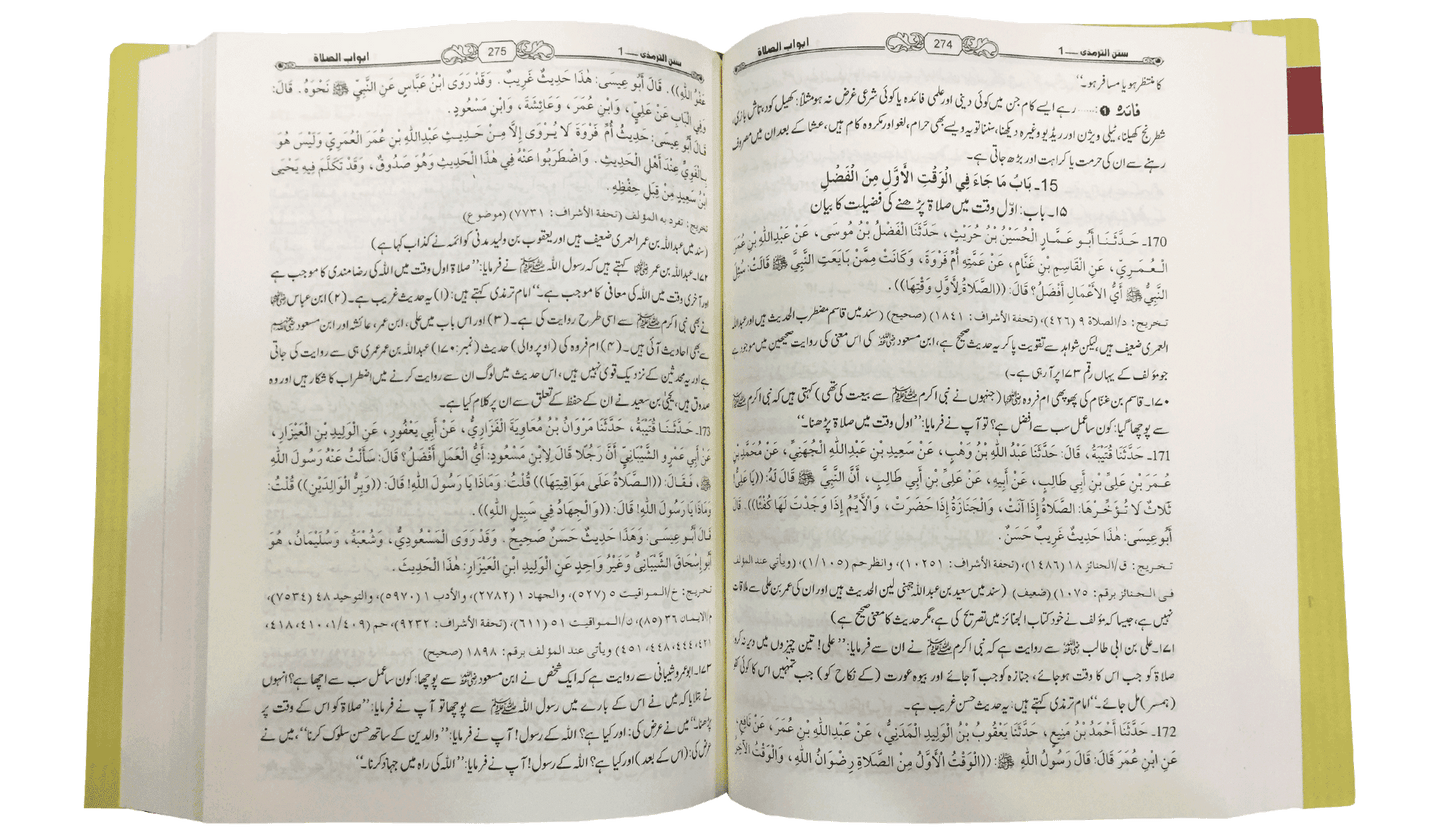 سنن الترمذی ــــ 1 274 ابواب الصلاة
کا منتظر ہو یا مسافر ہو‘‘۔
فائدہ ❶ :...... رہے ایسے کام جن میں کوئی دینی اور علمی فائدہ یا کوئی شرعی غرض نہ ہو مثلاً: کھیل کود، تاش بازی،
شطرنج کھیلنا، ٹیلی ویژن اور ریڈیو وغیرہ دیکھنا، سننا تو یہ ویسے بھی حرام، لغو اور مکروہ کام ہیں، عشا کے بعد ان میں مصروف
رہنے سے ان کی حرمت یا کراہت اور بڑھ جاتی ہے۔
15- بَابُ مَا جَاءَ فِي الْوَقْتِ الأَوَّلِ مِنَ الْفَضْلِ
۱۵۔ باب: اوّل وقت میں صلاۃ پڑھنے کی فضیلت کا بیان
170- حَدَّثَنَا أَبُو عَمَّارٍ الْحُسَيْنُ بْنُ حُرَيْثٍ، حَدَّثَنَا الْفَضْلُ بْنُ مُوسَى، عَنْ عَبْدِاللهِ بْنِ عُمَرَ
الْعُمَرِيِّ، عَنِ الْقَاسِمِ بْنِ غَنَّامٍ، عَنْ عَمَّتِهِ أُمِّ فَرْوَةَ، وَكَانَتْ مِمَّنْ بَايَعَتِ النَّبِيَّ ﷺ قَالَتْ: سُئِلَ
النَّبِيُّ ﷺ أَيُّ الأَعْمَالِ أَفْضَلُ؟ قَالَ: ((الصَّلاَةُ لِأَوَّلِ وَقْتِهَا)).
تخريج: د/الصلاة ٩ (٤٢٦)، (تحفة الأشراف: ١٨٤١) (صحیح) (سند میں قاسم مضطرب الحدیث ہیں اور عبداللہ
العمری ضعیف ہیں، لیکن شواہد سے تقویت پا کر یہ حدیث صحیح ہے، ابن مسعود ؓ کی اس معنی کی روایت صحیحین میں موجود ہے
جو مؤلف کے یہاں رقم ۱۷۳ پر آرہی ہے۔)
۱۷۰۔ قاسم بن غنّام کی پھوپھی ام فروہ ؓ (جنہوں نے نبی اکرم ﷺ سے بیعت کی تھی) کہتی ہیں کہ نبی اکرم ﷺ
سے پوچھا گیا: کون سا عمل سب سے افضل ہے؟ تو آپ نے فرمایا: ’’اول وقت میں صلاۃ پڑھنا۔‘‘
171- حَدَّثَنَا قُتَيْبَةُ، قَالَ: حَدَّثَنَا عَبْدُ اللهِ بْنُ وَهْبٍ، عَنْ سَعِيدِ بْنِ عَبْدِاللهِ الْجُهَنِيِّ، عَنْ مُحَمَّدِ بْنِ
عُمَرَ بْنِ عَلِيِّ بْنِ أَبِي طَالِبٍ، عَنْ أَبِيهِ، عَنْ عَلِيِّ بْنِ أَبِي طَالِبٍ، أَنَّ النَّبِيَّ ﷺ قَالَ لَهُ: ((يَا عَلِيُّ!
ثَلاَثٌ لاَ تُؤَخِّرْهَا: الصَّلاَةُ إِذَا آنَتْ، وَالْجَنَازَةُ إِذَا حَضَرَتْ، وَالأَيِّمُ إِذَا وَجَدْتَ لَهَا كُفْئًا)). قَالَ
أَبُو عِيسَى: هٰذَا حَدِيثٌ غَرِيبٌ حَسَنٌ.
تخريج: ق/الجنائز ١٨ (١٤٨٦)، (تحفة الأشراف: ١٠٢٥١)، وانظر حم (١/١٠٥)، (ويأتي عند المؤلف
في الجنائز برقم: ١٠٧٥) (ضعیف) (سند میں سعید بن عبداللہ جہنی لین الحدیث ہیں اور ان کی عمر بن علی سے ملاقات
نہیں ہے، جیسا کہ مؤلف نے خود کتاب الجنائز میں تصریح کی ہے، مگر حدیث کا معنی صحیح ہے)
۱۷۱۔ علی بن ابی طالب ؓ سے روایت ہے کہ نبی اکرم ﷺ نے ان سے فرمایا: ’’علی! تین چیزوں میں دیر نہ کرو:
صلاۃ کو جب اس کا وقت ہو جائے، جنازہ کو جب آ جائے اور بیوہ عورت (کے نکاح کو) جب تمہیں اس کا کوئی کفو
(ہمسر) مل جائے۔‘‘ امام ترمذی کہتے ہیں: یہ حدیث حسن غریب ہے۔
172- حَدَّثَنَا أَحْمَدُ بْنُ مَنِيعٍ، حَدَّثَنَا يَعْقُوبُ بْنُ الْوَلِيدِ الْمَدَنِيُّ، عَنْ عَبْدِاللهِ بْنِ عُمَرَ، عَنْ نَافِعٍ،
عَنِ ابْنِ عُمَرَ قَالَ: قَالَ رَسُولُ اللهِ ﷺ: ((الْوَقْتُ الأَوَّلُ مِنَ الصَّلاَةِ رِضْوَانُ اللهِ، وَالْوَقْتُ الآخِرُ
سنن الترمذی ــــ 1 275 ابواب الصلاة
عَفْوُ اللهِ)). قَالَ أَبُو عِيسَى: هٰذَا حَدِيثٌ غَرِيبٌ. وَقَدْ رَوَى ابْنُ عَبَّاسٍ عَنِ النَّبِيِّ ﷺ نَحْوَهُ. قَالَ:
وَفِي الْبَابِ عَنْ عَلِيٍّ، وَابْنِ عُمَرَ، وَعَائِشَةَ، وَابْنِ مَسْعُودٍ.
قَالَ أَبُو عِيسَى: حَدِيثُ أُمِّ فَرْوَةَ لاَ يُرْوَى إِلَّا مِنْ حَدِيثِ عَبْدِاللهِ بْنِ عُمَرَ الْعُمَرِيِّ وَلَيْسَ هُوَ
بِالْقَوِيِّ عِنْدَ أَهْلِ الْحَدِيثِ. وَاضْطَرَبُوا عَنْهُ فِي هٰذَا الْحَدِيثِ وَهُوَ صَدُوقٌ، وَقَدْ تَكَلَّمَ فِيهِ يَحْيَى
بْنُ سَعِيدٍ مِنْ قِبَلِ حِفْظِهِ.
تخريج: تفرد به المؤلف (تحفة الأشراف: ٧٧٣١) (موضوع)
(سند میں عبداللہ بن عمر العمری ضعیف ہیں اور یعقوب بن ولید مدنی کو ائمہ نے کذاب کہا ہے)
۱۷۲۔ عبداللہ بن عمر ؓ کہتے ہیں کہ رسول اللہ ﷺ نے فرمایا: ’’صلاۃ اول وقت میں اللہ کی رضا مندی کا موجب ہے
اور آخری وقت میں اللہ کی معافی کا موجب ہے۔‘‘ امام ترمذی کہتے ہیں: (۱) یہ حدیث غریب ہے۔ (۲) ابن عباس ؓ
نے بھی نبی اکرم ﷺ سے اسی طرح روایت کی ہے۔ (۳) اور اس باب میں علی، ابن عمر، عائشہ اور ابن مسعود ؓ
سے بھی احادیث آئی ہیں۔ (۴) ام فروہ کی (اوپر والی) حدیث (نمبر: ۱۷۰) عبداللہ بن عمر عمری ہی سے روایت کی جاتی
ہے اور یہ محدثین کے نزدیک قوی نہیں ہیں، اس حدیث میں لوگ ان سے روایت کرنے میں اضطراب کا شکار ہیں اور وہ
صدوق ہیں، یحییٰ بن سعید نے ان کے حفظ کے تعلق سے ان پر کلام کیا ہے۔
173- حَدَّثَنَا قُتَيْبَةُ، حَدَّثَنَا مَرْوَانُ بْنُ مُعَاوِيَةَ الْفَزَارِيُّ، عَنْ أَبِي يَعْفُورٍ، عَنِ الْوَلِيدِ بْنِ الْعَيْزَارِ،
عَنْ أَبِي عَمْرٍو الشَّيْبَانِيِّ أَنَّ رَجُلًا قَالَ لِابْنِ مَسْعُودٍ: أَيُّ الْعَمَلِ أَفْضَلُ؟ قَالَ: سَأَلْتُ عَنْهُ رَسُولَ اللهِ
ﷺ، فَقَالَ: ((الصَّلاَةُ عَلَى مَوَاقِيتِهَا)) قُلْتُ: وَمَاذَا يَا رَسُولَ اللهِ! قَالَ: ((وَبِرُّ الْوَالِدَيْنِ)) قُلْتُ:
وَمَاذَا يَا رَسُولَ اللهِ! قَالَ: ((وَالْجِهَادُ فِي سَبِيلِ اللهِ)).
قَالَ أَبُو عِيسَى: وَهَذَا حَدِيثٌ حَسَنٌ صَحِيحٌ. وَقَدْ رَوَى الْمَسْعُودِيُّ، وَشُعْبَةُ، وَسُلَيْمَانُ، هُوَ
أَبُو إِسْحَاقَ الشَّيْبَانِيُّ وَغَيْرُ وَاحِدٍ عَنِ الْوَلِيدِ ابْنِ الْعَيْزَارِ: هٰذَا الْحَدِيثَ.
تخريج: خ/المواقيت ٥ (٥٢٧)، والجهاد ١ (٢٧٨٢)، والأدب ١ (٥٩٧٠)، والتوحيد ٤٨ (٧٥٣٤)،
م/الإيمان ٣٦ (٨٥)، ن/المواقيت ٥١ (٦١١)، (تحفة الأشراف: ٩٢٣٢)، حم (١/٤٠٩، ٤١٠، ٤١٨،
٤٢١، ٤٤٤، ٤٤٨، ٤٥١) ويأتي عند المؤلف برقم: ١٨٩٨ (صحيح)
۱۷۳۔ ابو عمرو شیبانی سے روایت ہے کہ ایک شخص نے ابن مسعود ؓ سے پوچھا: کون سا عمل سب سے اچھا ہے؟ انہوں
نے بتلایا کہ میں نے اس کے بارے میں رسول اللہ ﷺ سے پوچھا تو آپ نے فرمایا: ’’صلاۃ کو اس کے وقت پر
پڑھنا۔‘‘ میں نے عرض کی: اور کیا ہے؟ اللہ کے رسول! آپ نے فرمایا: ’’والدین کے ساتھ حسن سلوک کرنا‘‘، میں نے
عرض کی: (اس کے بعد) اور کیا ہے؟ اللہ کے رسول! آپ نے فرمایا: ’’اللہ کی راہ میں جہاد کرنا۔‘‘